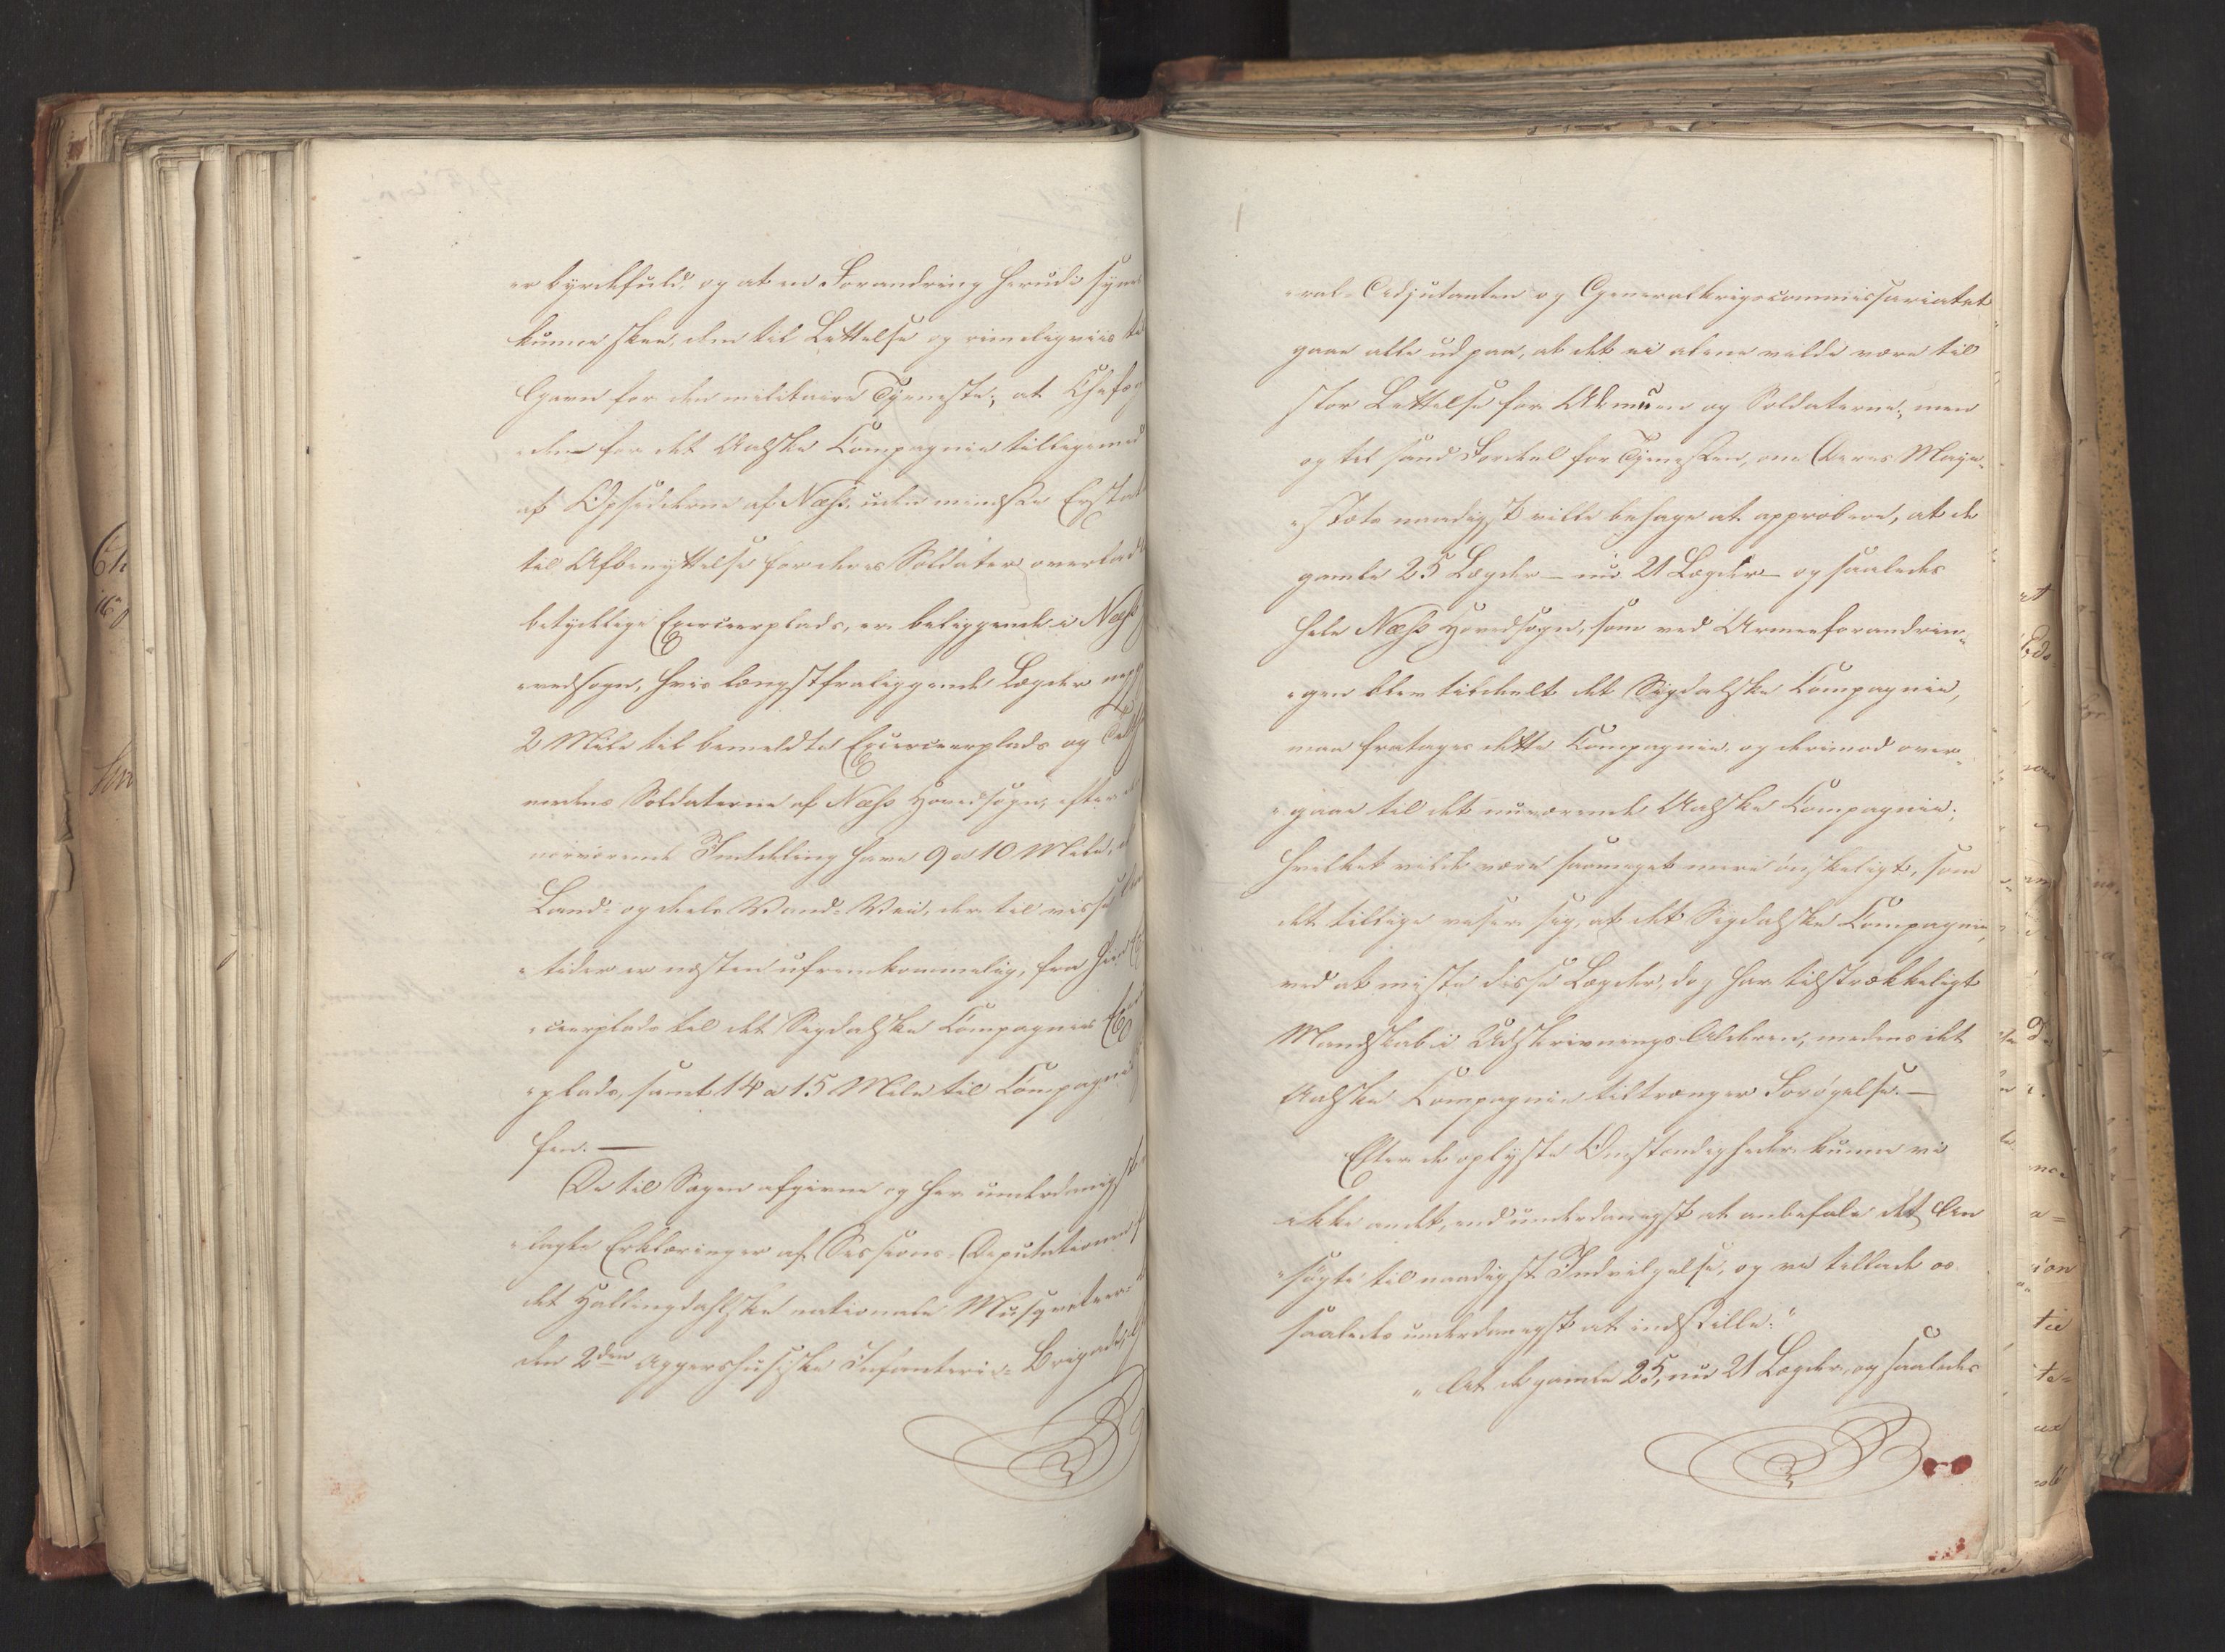 er byrdefuld, og at en Forandring herudi syne
kunne skee, den til Lettelse og rimeligviis ti
Gavn for den militaire Tjeneste; at
den for det Aalske Compagnie tilligemed
af Opsidderne af Næss, uden mindste Erstat
til Afbenyttelse for deres Soldater overlad
betydelige Exerceerplads, er beliggende i Næss
vedsogn, hvis længstfraliggende Lægder
2 Mile til bemeldte Exerceerplads og
medens Soldaterne af Næss Hovedsogn, efter
nærværende Inddeling have 9 a 10 Mile,
Land- og deels Vand-Vei, der til visse
tider er næsten ufremkommelig, fra
ceerplads til det Sigdalske Compagnies
plads, samt 14 a 15 Mile til Compagnie
fen. —
De til Sagen afgivne og her underdanigst
lagte Erklæringer af Sessions-Deputationen
det Hallingdahlske nationale Musqueteer
den 2den Aggershusiske Infanterie-Brigade,
eral-Adjutanten og Generalkrigscommissariatet
gaae alle ud paa, at det ei alene vilde være til
stor Lettelse for Almuen og Soldaterne; men
og til sand Fordeel for Tjenesten, om Deres Maje-
stæt naadigst ville behage at approbere, at de
gamle 25 Lægder — nu 21 Lægder — og saaledes
hele Næss Hovedsogn, som ved Armeeforandrin-
gen blev tildeelt det Sigdalske Compagnie,
maa fratages dette Compagnie og derimod over-
gaae til det nuværende Aalske Compagnie;
hvilket vilde være saameget mere ønskeligt, som
det tillige viser sig, at det Sigdalske Compagnie,
ved at miste disse Lægder, dog har tilstrækkeligt
Mandskab i Udskrivnings Alderen, medens det
Aalske Compagnie tiltrænger Forøgelse. —
Efter de oplyste Omstændigheder kunne vi
ikke andet, end underdanigst at anbefale det An
søgte til naadigst Indvilgelse, og vi tillade os
saaledes underdanigst at indstille:
"At de gamle 25, nu 21 Lægder, og saaledes